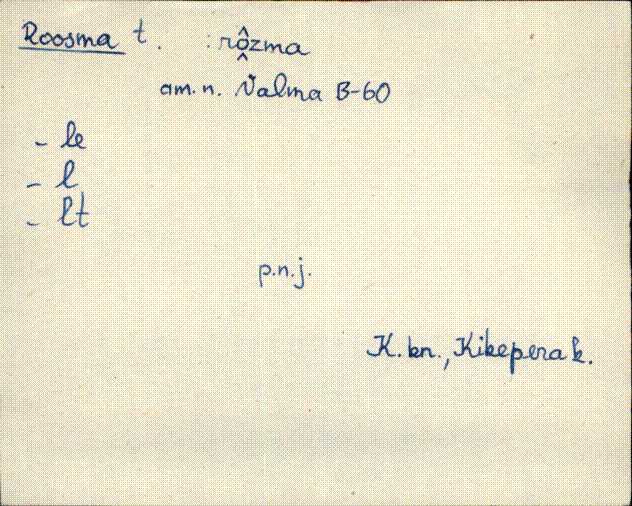 Roosma t. : rôzma
am. n. Valma B-60
- le
- l
- lt
p.n.j.
K. kn., Kikepera k.